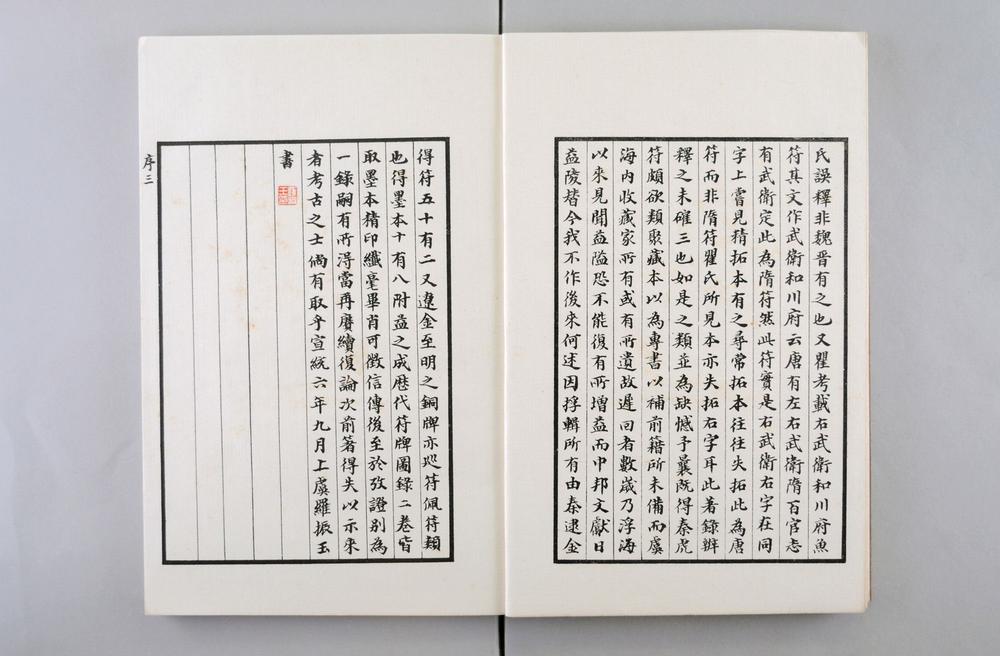 氏誤釋非魏晉有之也又瞿考載右武衛和川府魚
符其文作武衛和川府云唐有左右武衛隋百官志
有武衛定此為隋符然此符實是右武衛右字在同
字上嘗見精拓本有之尋常拓本往往失拓此為唐
符而非隋符瞿氏所見本亦失拓右字耳此著錄辨
釋之未確三也如是之類並為缺憾予曩既得秦虎
符頗欲類聚藏本以為專書以補前籍所未備而虞
海内收藏家所有或有所遺故遲回者數歲乃浮海
以來見聞益隘恐不能復有所增益而中邦文獻日
益陵替今我不作後來何述因捊輯所有由秦逮金
得符五十有二又遼金至明之銅牌亦𨒪符佩符類
也得墨本十有八附益之成歷代符牌圖錄二卷皆
取墨本精印纖毫畢肖可徵信傳後至於攷證別為
一錄嗣有所得當再賡續復論次前著得失以示來
者考古之士倘有取乎宣統六年九月上虞羅振玉
書
序三